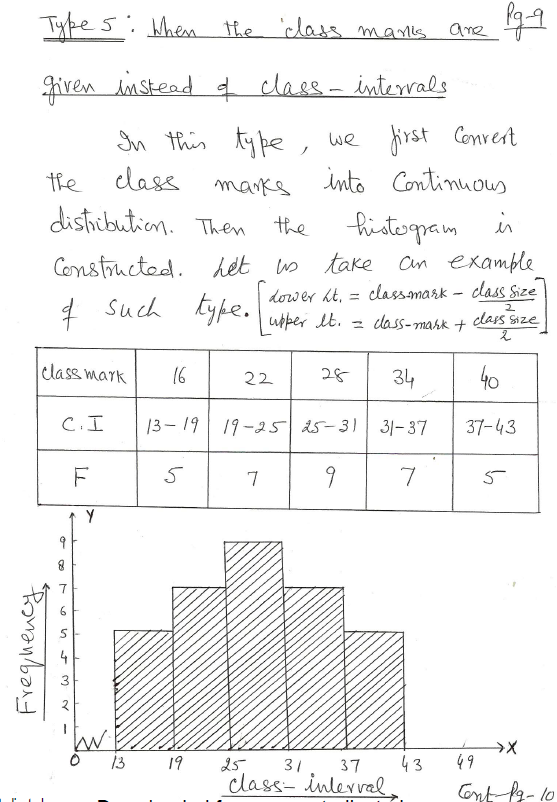 Type 5 : When the class marks are Pg-9
given instead of class - intervals
In this type, we first convert
the class marks into continuous
distribution. Then the histogram is
constructed. Let us take an example
of such type. [Lower lt. = classmark - class size/2
upper lt. = class-mark + class size/2]
class mark 16 22 28 34 40
C.I 13-19 19-25 25-31 31-37 37-43
F 5 7 9 7 5
Y
9
8
7
6
5
4
3
2
1
Frequency
0 13 19 25 31 37 43 49 X
class - interval
Cont Pg-10